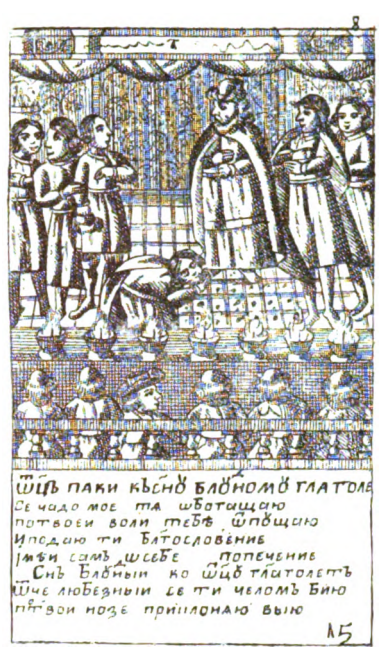 ѿц҃ъ паки къ сн҃ꙋ блꙋдномꙋ глаголе
Се чадо мое тѧ ѡботащаю
по твоеи воли тебѣ ѿпꙋщаю
И подаю ти бл҃гословение
имѣи самъ ѡ себе попечение
Сн҃ъ блꙋдныи ко ѿц҃ꙋ глаголетъ
ѿче любезныи се ти челомъ бию
твои нозе приклоняю выю